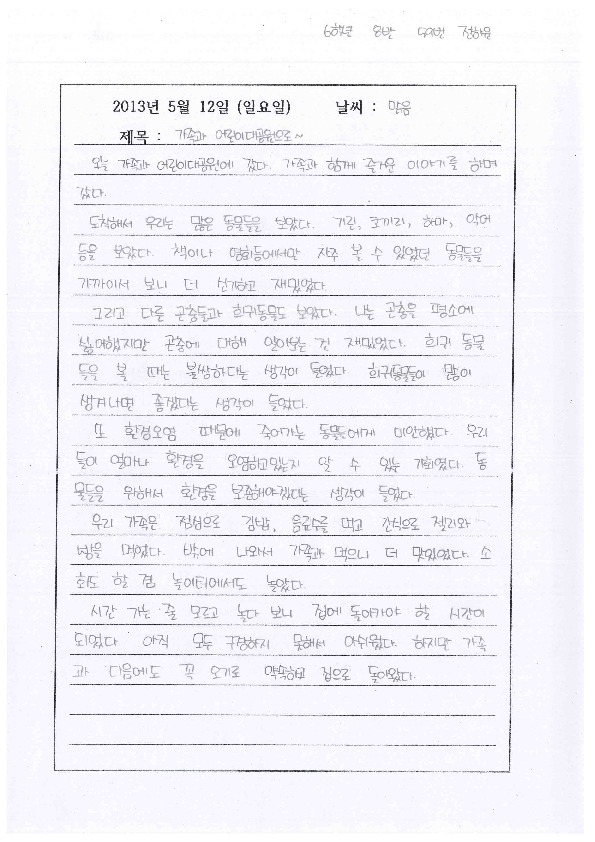 6학년 8반 전하윤
2013년 5월 12일 (일요일) 날씨 : 맑음
제목 : 가족과 어린이대공원으로~
오늘 가족과 어린이대공원에 갔다. 가족과 함께 즐거운 이야기를 하며
갔다.
도착해서 우리는 많은 동물들을 보았다. 기린, 코끼리, 하마, 악어
등을 보았다. 책이나 영화등에서만 자주 볼 수 있었던 동물들을
가까이서 보니 더 신기하고 재밌었다.
그리고 다른 곤충들과 희귀동물도 보았다. 나는 곤충을 평소에
싫어했지만 곤충에 대해 알아보는 건 재밌었다. 희귀 동물
들을 볼 때는 불쌍하다는 생각이 들었다 희귀동물들이 많이
생겨나면 좋겠다는 생각이 들었다.
또 환경오염 때문에 죽어가는 동물들에게 미안했다. 우리
들이 얼마나 환경을 오염하고있는지 알 수 있는 기회였다. 동
물들을 위해서 환경을 보존해야겠다는 생각이 들었다
우리 가족은 점심으로 김밥, 음료수를 먹고 간식으로 젤리와
빵을 먹었다. 밖에 나와서 가족과 먹으니 더 맛있었다. 소
화도 할 겸 놀이터에서도 놀았다.
시간 가는 줄 모르고 놀다 보니 집에 돌아가야 할 시간이
되었다 아직 모두 구경하지 못해서 아쉬웠다. 하지만 가족
과 다음에도 꼭 오기로 약속하고 집으로 돌아왔다.